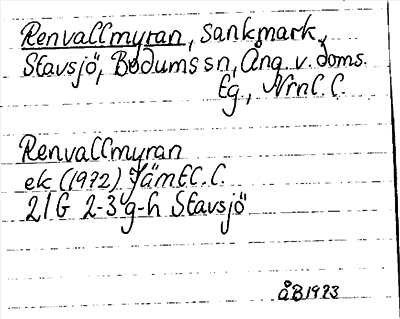 Renvallmyran, sankmark,
Stavsjö, Bodums sn, Ång. v. doms.
tg., Nrnl. l.
Renvallmyran
ek (1972) Jämtl. l.
21G 2-3 g-h Stavsjö
ÅB1973